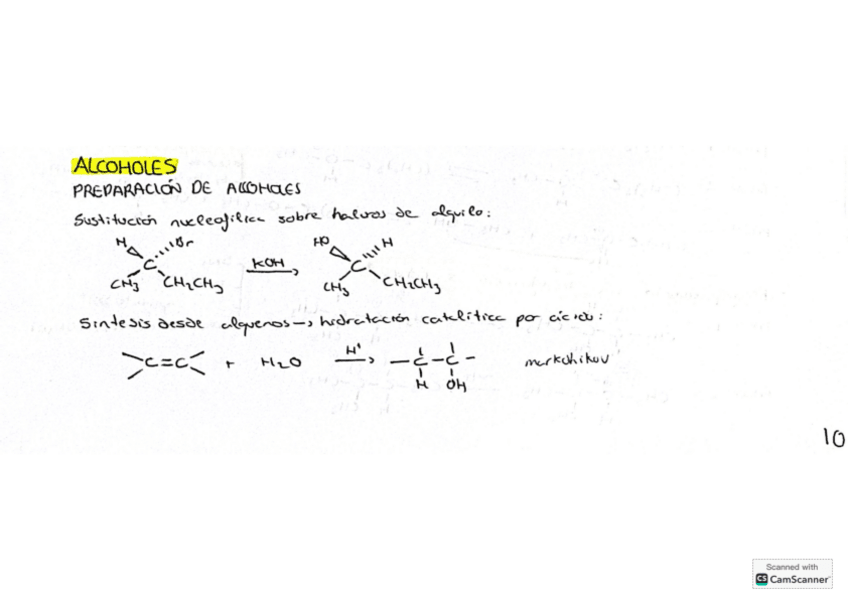 ALCOHOLES
PREPARACIÓN DE ALCOHOLES
Sustitución nucleofílica sobre haluros de alquilo:
H Br HO H
C KOH C
CH3 CH2CH3 CH3 CH2CH3
Síntesis desde alquenos → hidratación catalítica por ácido:
C=C + H2O H+ → -C-C- markohikov
H OH
10
Scanned with
CS CamScanner